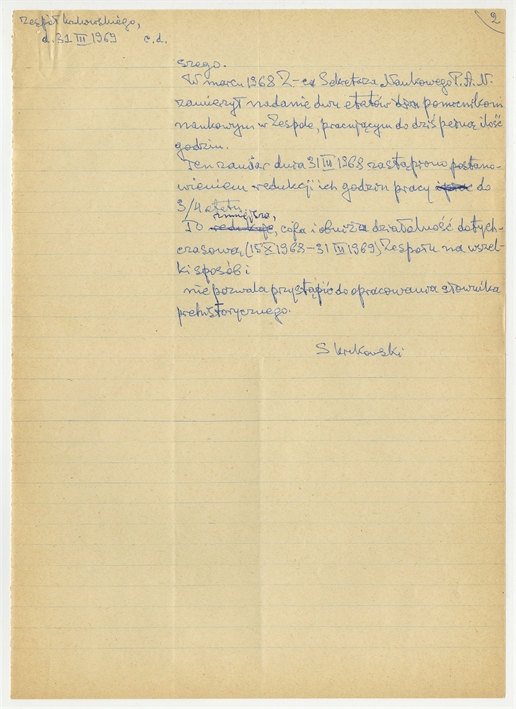 Zespół Krukowskiego,
d. 31 III 1969 c.d.
2
szego.
W marcu 1968 Z-ca Sekretarza Naukowego P.A.N.
zamierzył nadanie dwu etatów pomocnikom
naukowym w Zespole, pracującym do dziś pełną ilość
godzin.
Ten zamiar dnia 31 III 1968 zastąpiono postano-
wieniem redukcji ich godzin pracy do
3/4 etatu.
To zmniejsza, cofa i obniża działalność dotych-
czasową (15 X 1963 – 31 III 1969) Zespołu na wszel-
ki sposób i
nie pozwala przystąpić do opracowania słownika
prehistorycznego.
S Krukowski